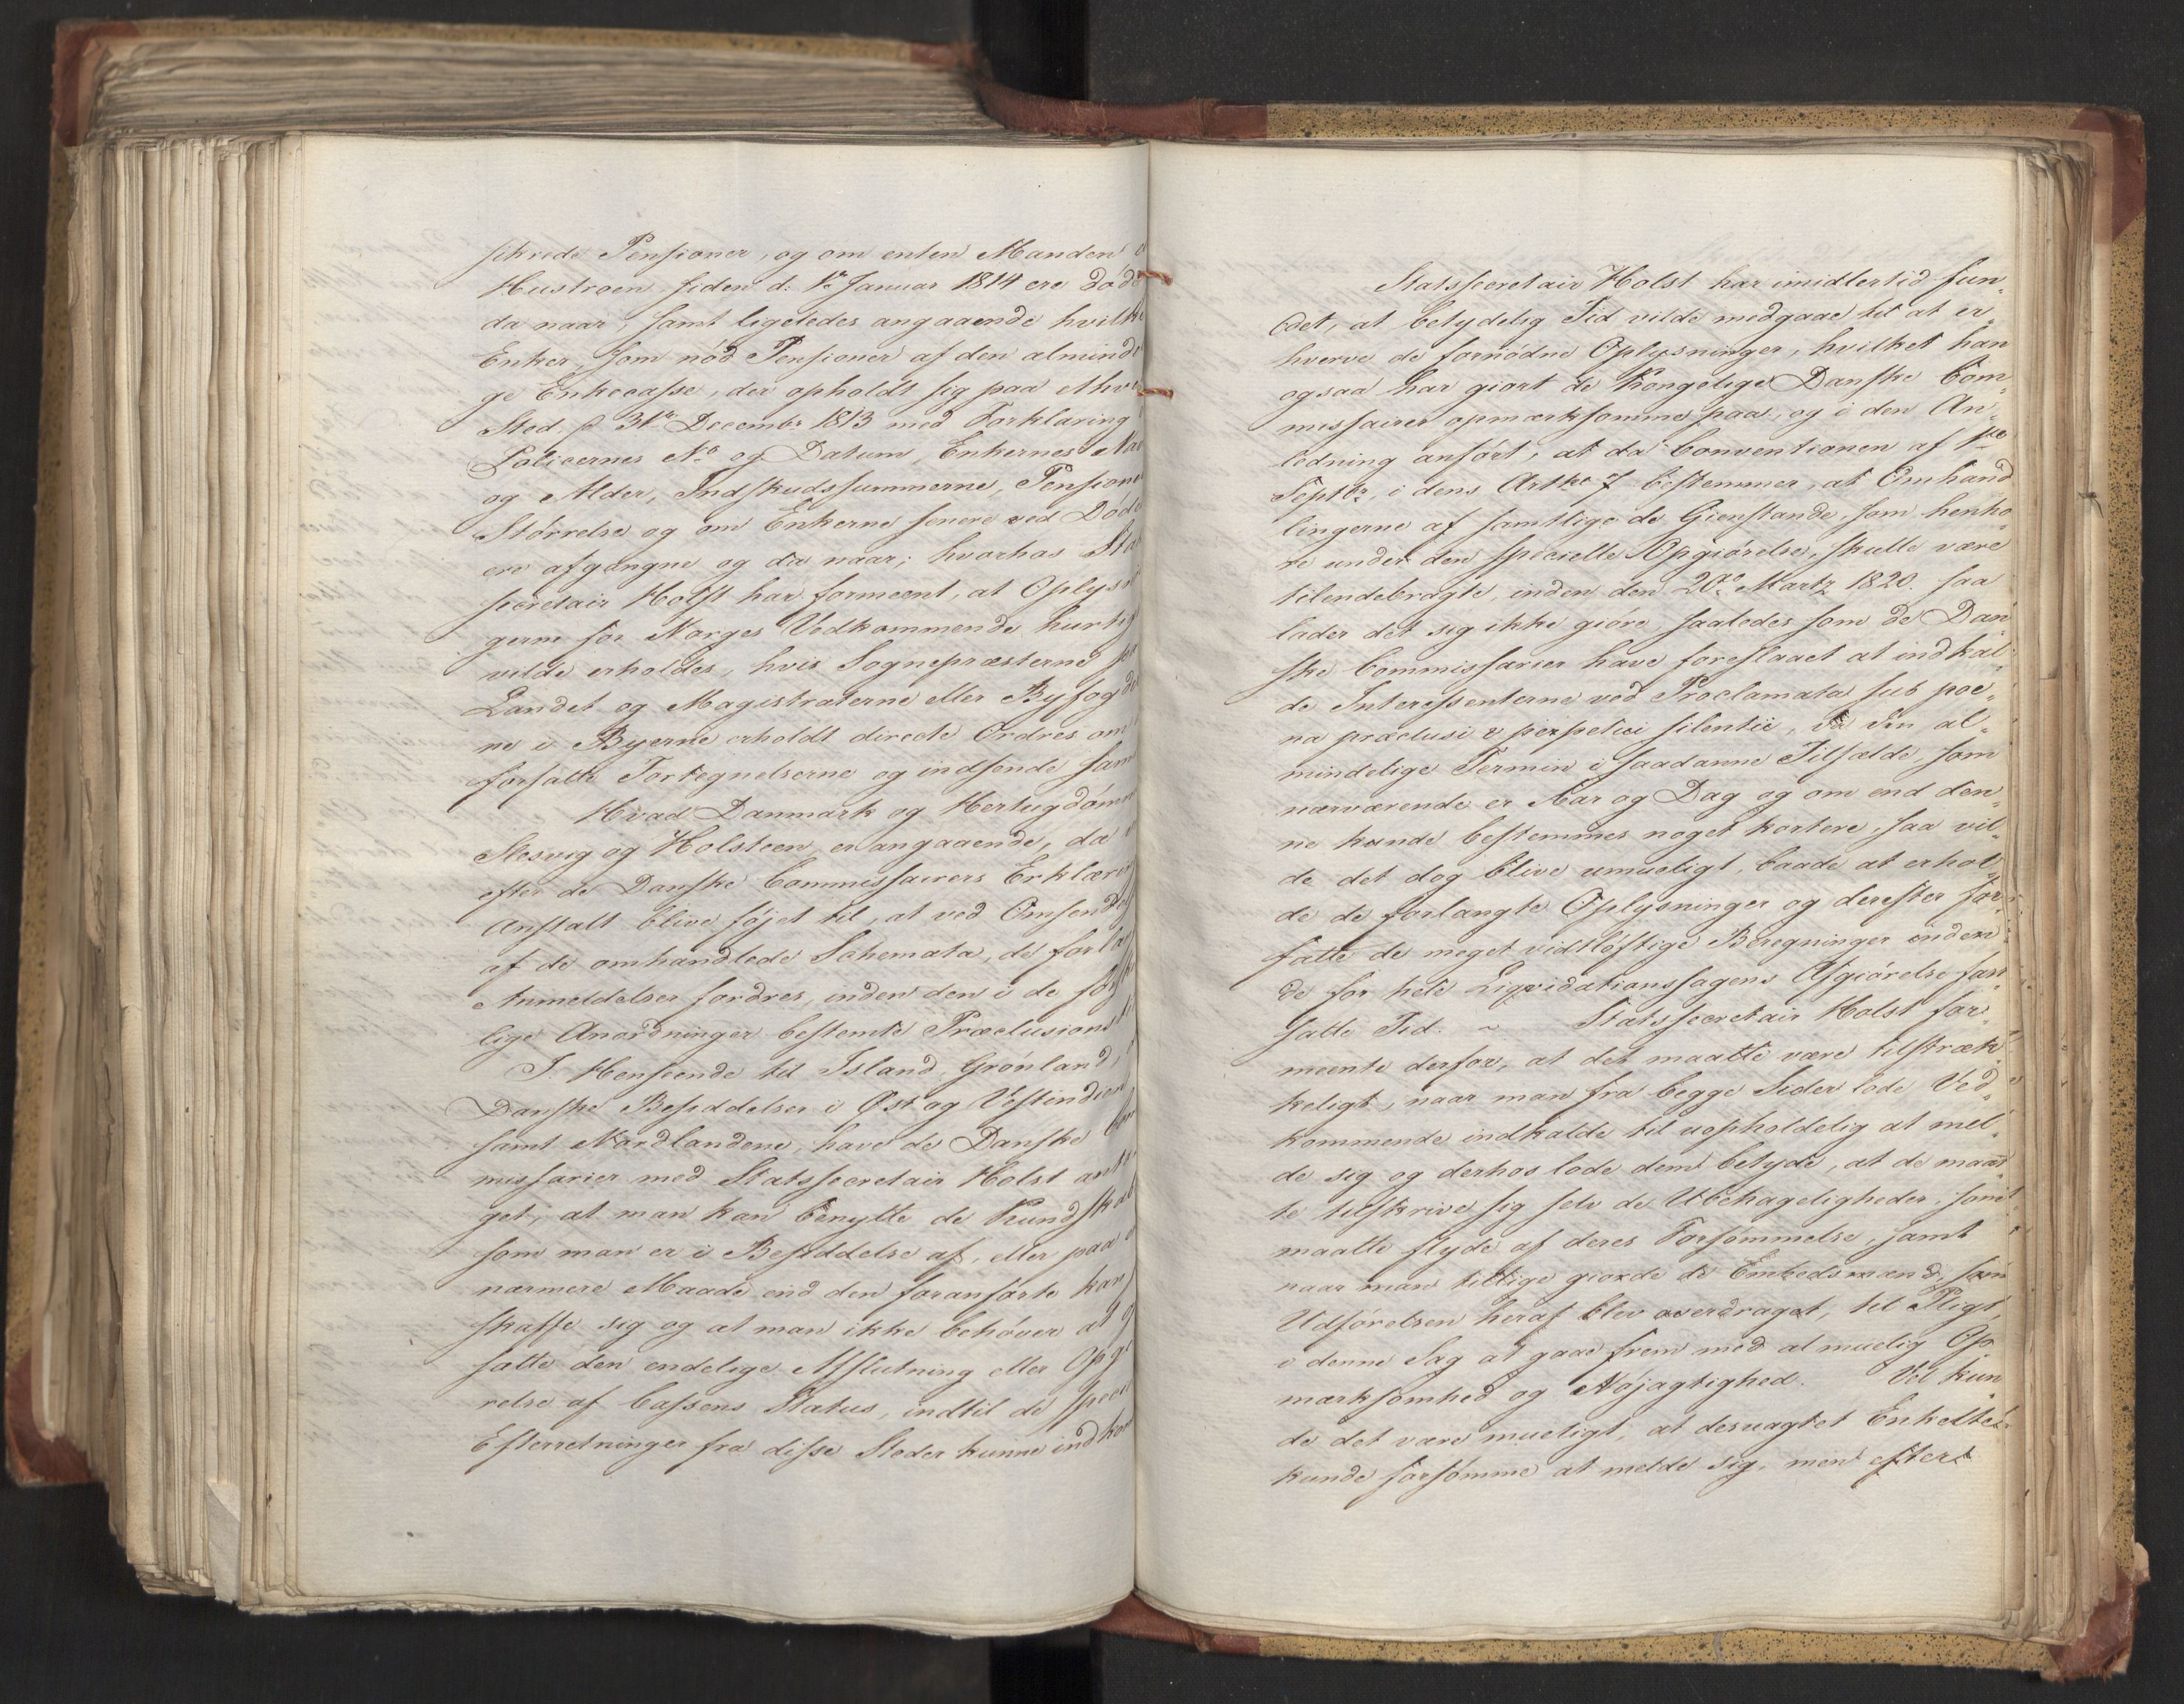 sikrede Pensioner, og om enten Manden
Hustroen siden d: 1ste Januar 1814 ere døde
da naar, samt ligeledes angaaende hvilke
Enker, som nød Pensioner af den alminde
ge Enkecasse, der opholdt sig paa ethvert
Sted p 31te Decembr 1813 med Forklaring
Policernes No og Datum, Enkernes Na
og Alder, Indskudssummerne, Pensione
Størrelse og om Enkerne senere ved Døde
ere afgangne og da naar; hvorhos Sta
secretair Holst har formeent, at Oplysn
gerne for Norges Vedkommende hurtig
vilde erholdes, hvis Sognepræsterne
Landet og Magistraterne eller Byfogde
ne i Byerne erholdt directe Ordres om
forfatte Fortegnelserne og indsende sam
Hvad Danmark og Hertugdømm
Slesvig og Holsteen er angaaende, da
efter de Danske Commissairers Erklæring
Anstalt blive føjet til, at ved Omsendelse
af de omhandlede Schemata, de forlan
Anmeldelser fordres, inden den i de for
lige Anordninger bestemte Præclusions
I Henseende til Island, Grønland,
Danske Besiddelser i Øst og Vestindien
samt Nordlandene, have de Danske Com
missarier med Statssecretair Holst anta
get, at man kan benytte de Kundskab
som man er i Besiddelse af, eller paa
nærmere Maade end den foranførte kan
skaffe sig og at man ikke behøver at
sætte den endelige Afslutning eller Opgi
relse af Cassens Status, indtil de speciel
Efterretninger fra disse Steder kunne indkom
Statssecretair Holst har imidlertid fun¬
det, at betydelig Tid vilde medgaae til at er¬
hverve de fornødne Oplysninger, hvilket han
ogsaa har giort de Kongelige Danske Com¬
missairer opmærksomme paa, og i den An¬
ledning anført, at da Conventionen af 1ste
Septbr, i dens Artke 7 bestemmer, at Omhand
lingerne af samtlige de Gienstande, som henhø¬
re under den specielle Opgiørelse, skulle være
tilendebragte, inden den 20de Martz 1820. saa
lader det sig ikke giøre, saaledes som de Dan¬
ske Commissarier have foreslaaet at indkal¬
de Interessenterne ved Proclamata sub poe¬
na præclusi & perpetui silentii, da den al¬
mindelige Termin i saadanne Tilfælde, som
nærværende er Aar og Dag og om end den¬
ne kunde bestemmes noget kortere, saa vil¬
de det dog blive umueligt, baade at erhol¬
de de forlangte Oplysninger og derefter for¬
fatte de meget vidtløftige Beregninger inden
de for hele Liqvidationssagens Afgiørelse fast
satte Tid. ~ Statssecretair Holst for¬
meente derfor, at det maatte være tilstræk¬
keligt, naar man fra begge Sider lode Ved¬
kommende indkalde til uopholdelig at mel¬
de sig og derhos lode dem betyde, at de maat
te tilskrive sig selv de Ubehageligheder, som
maatte flyde af deres Forsømmelse, samt
naar man tillige giorde de Embedsmænd, som
Udførelsen heraf blev overdraget, til Pligt,
i denne Sag at gaae frem med al muelig Op¬
mærksomhed og Nøjagtighed. Vel kun
de det være mueligt, at desuagtet Enkelte
kunde forsømme at melde sig, men efter